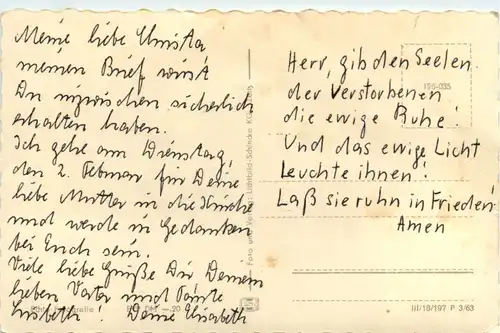 Meine liebe Christa
meinen Brief wirst
Du inzwischen sicherlich
erhalten haben.
Ich gehe am Dienstag,
den 2. Februar für Deine
liebe Mutter in die Kirche
und werde in Gedanken
bei Euch sein.
Viele liebe Grüße Dir Deinem
lieben Vater und Tante
Lisbeth! Deine Elisabeth
Foto und Verlag: Lichtbild-Schincke
Herr, gib den Seelen
der Verstorbenen
die ewige Ruhe!
Und das ewige Licht
Leuchte ihnen!
Laß sie ruhn in Frieden!
Amen
III/18/197 P 3/63